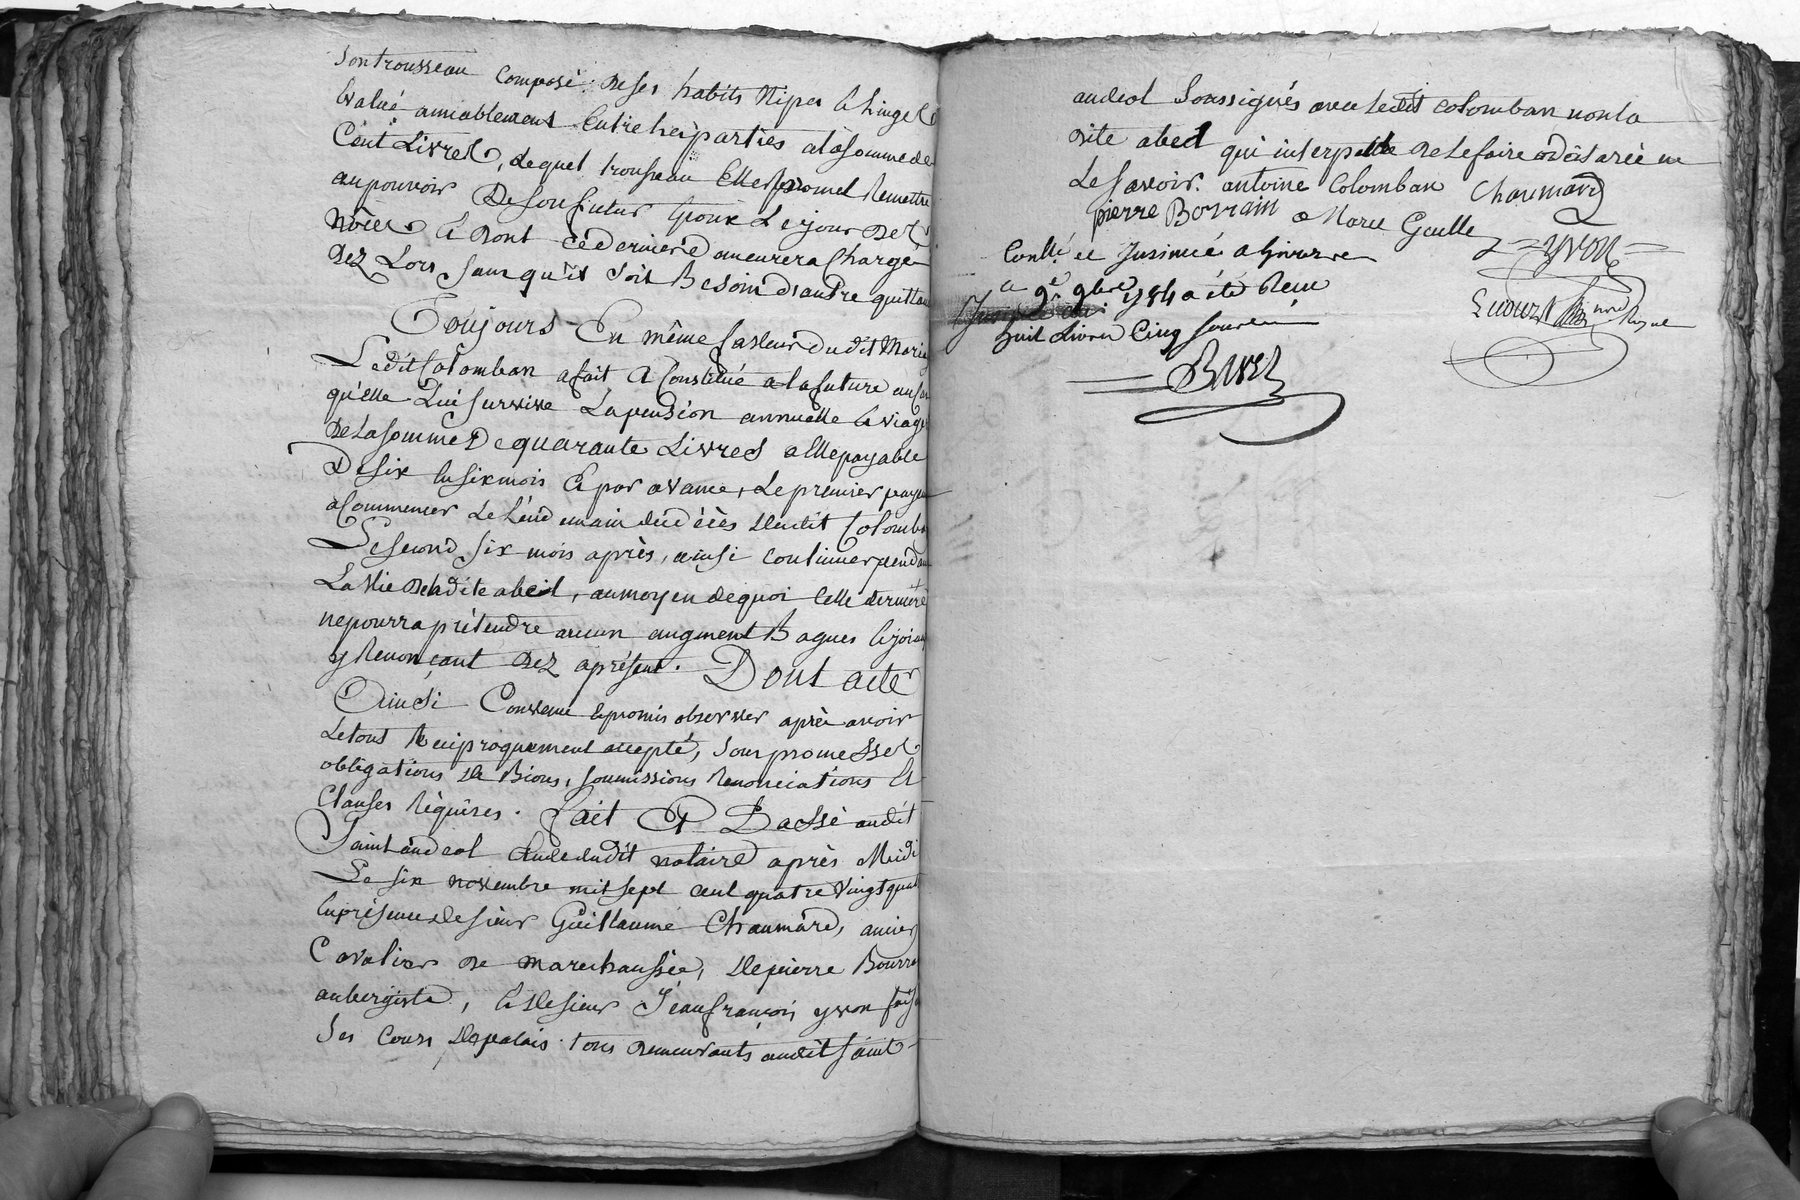 son trousseau composé de ses habits Nipes & linges
Evalué amiablement Entre les parties à la somme de
Cent Livres, Lequel trousseau Elle promet Remettre
au pouvoir De son futur Epoux Le jour des
Nôces & dont ce dernier demeurera Chargé
dez Lors sans qu'il soit Besoin d'autre quittan
Toujours En même faveur dudit Mariage
Ledit Colomban a fait & Constitué a la future au cas
qu'elle Lui survive La pension annuelle & viagere
de La somme De quarante Livres a Elle payable
De six En six mois & par avance, Le premier payem
a Commencer Le Lendemain du décès dudit Colomban
Le second six mois après, ainsi continuer pendant
La Vie de ladite abeil, au moyen de quoi Cette derniere
ne pourra prétendre aucun augment Bagues & joiaux
y Renonçant dez aprésent. Dont acte
Ainsi Convenu & promis observer après avoir
Le tout Reciproquement accepté, sous promesses
obligations de Biens, soumissions Renonciations &
Clauses Réquises. fait & Passé audit
Saint andeol Etude dudit notaire après Midi
Le six novembre mil sept cent quatre Vingt quatre
En présence de sieur Guillaume Chaumard, ancien
Cavalier de marechaussée, de pierre Bourrain
aubergiste, & de sieur Jean françois yvon
ses cours de palais. tous demeurants audit saint
andeol Soussignés avec Ledit colomban non la
dite abeil qui interpellée de le faire a déclaré ne
Le savoir. antoine Colomban Chaumard
pierre Borrain Marie Gaulle
yvon
Conllé et Insinué a
a 9e 9bre 1784 a été Reçu
huit Livres Cinq sous